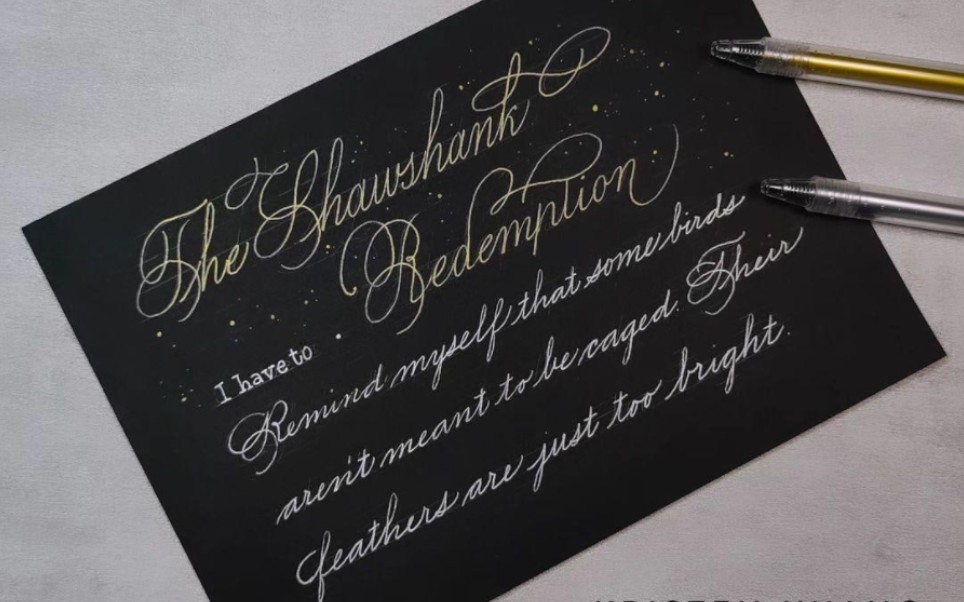 The Shawshank
Redemption
I have to
Remind myself that some birds
aren't meant to be caged. Their
feathers are just too bright.